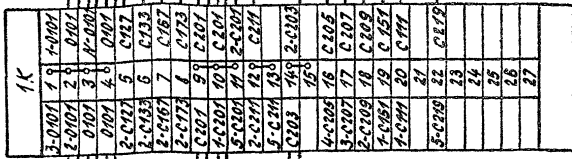 1.К
3-0101 1 1-0101
2-0101 2 0101
0101 3 К-0101
0101 4 0101
2-С127 5 С127
2-С133 6 С133
2-С167 7 С167
2-С173 8 С173
С201 9 С201
1-С201 10 С201
5-С201 11 2-С201
2-С211 12 С211
5-С211 13
С203 14 2-С203
15
4-С205 16 С205
3-С207 17 С207
2-С209 18 С209
1-С151 19 С157
1-С111 20 С111
21
5-С219 22 С219
23
24
25
26
27